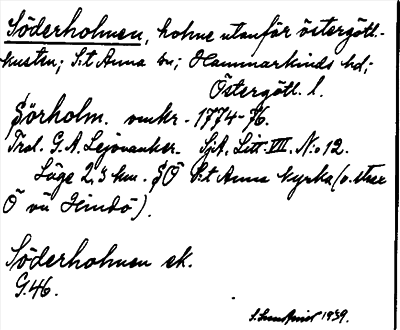 Söderholmen, holme utanför östergötl.-
kusten; S:t Anna sn; Hammarkinds hd;
Östergötl. l.
Sörholm. omkr. 1774-76.
Trol. G. A. Lejonanker. SjA. Litt. VIII. N:o 12.
Läge 2,3 km. SÖ S:t Anna kyrka (v. str
Ö vü
Söderholmen ek.
G.46.
1939.